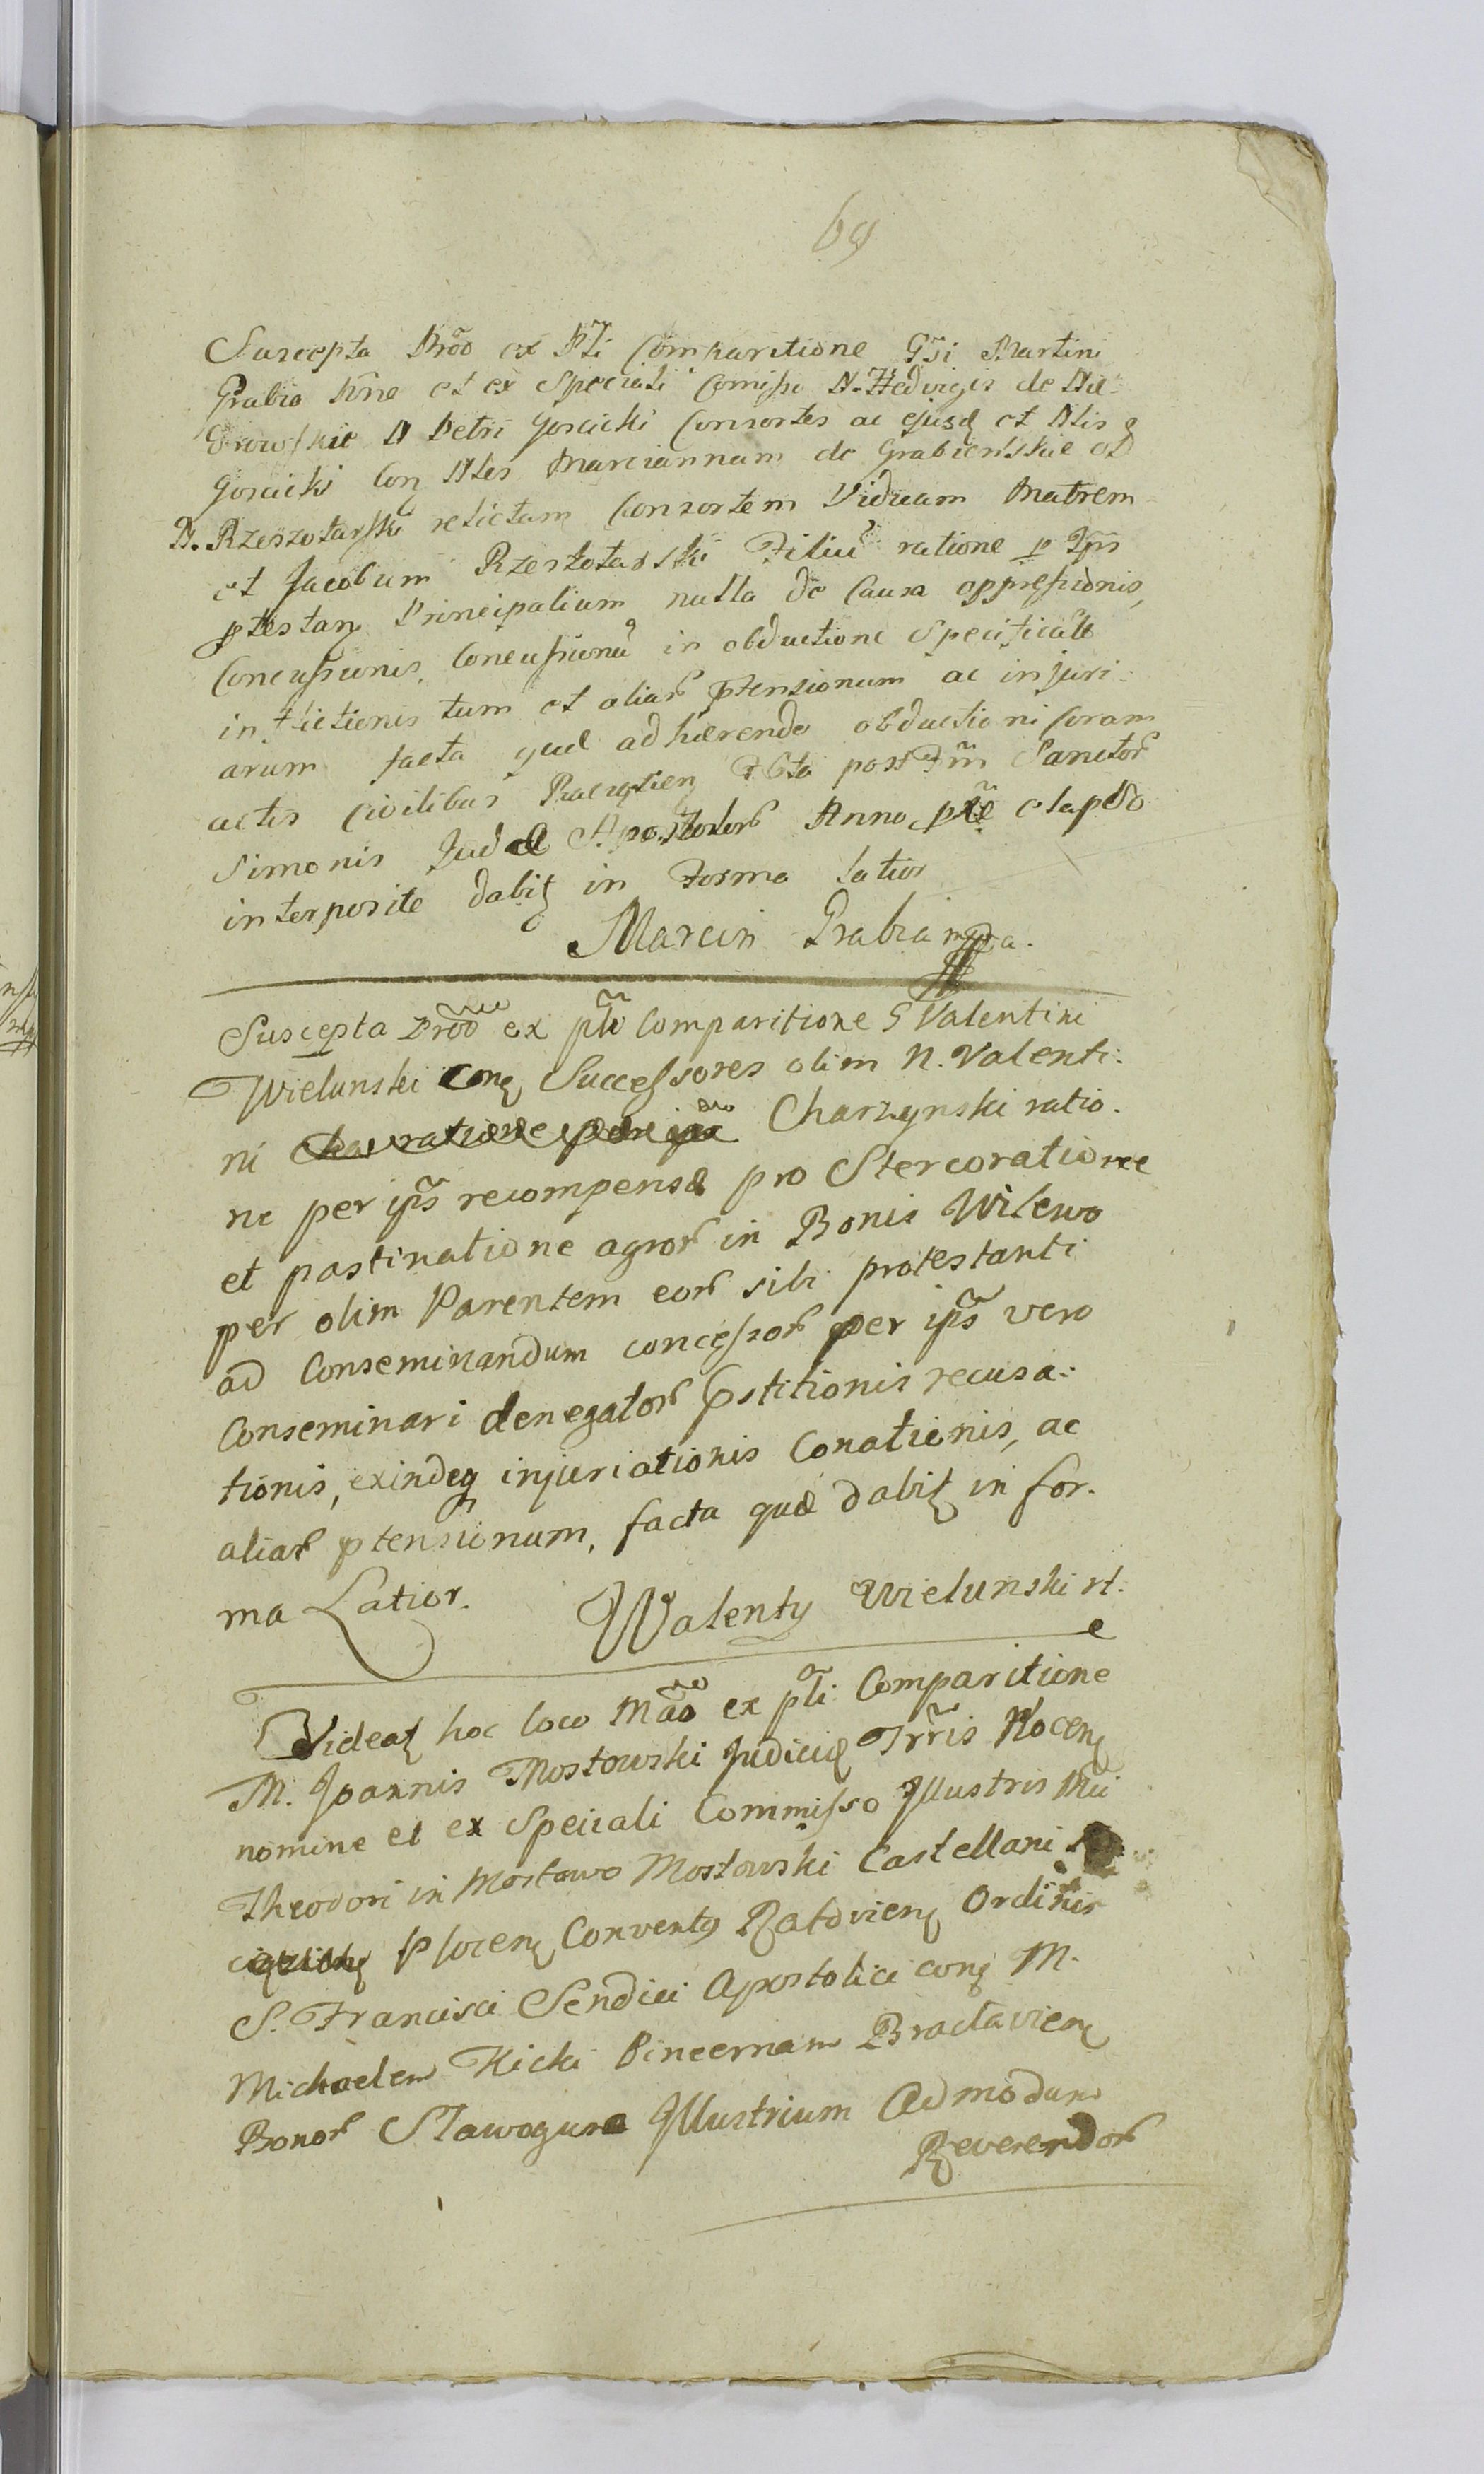 69
Suscepta Prõo ex Pĩti Comparitione Gsi Martini
Grabia Nne et ex Speciali Comisso N. Hedvigis de
N Petri Goscicki Consortes ac ejusq et Nlis
Goscicki Conq Nles Mariannam de Grabienskie olim
N. Rzeszotarski relictam Consortem Viduam Matrem
et Jacobum Rzeszotarski Filiu ratione p Ipš
ptestanq Principalium nulla de Causa oppressionis,
Concussionis, Concussionu in obductione Specificata
inflictionis tum et aliarũ ptensionum ac injuri:
arum facta quæ adhærendo obductioni coram
actis Civilibus Raciązien Sbto post Fm Sanctorũ
Simonis Judæ Apostolorũ Anno elapso
interposite dabiť in Forma latior
Marcin Grabia mppa.
Suscepta Prõo ex pľi Comparitione G Valentini
Wielunski Conq Successores olim N. Valenti:
ni Charzynski ratio.
ne per ipš recompensæ pro Stercoratione
et pastinatione agrorũ in Bonis Wilewo
per olim Parentem eorũ sibi protestanti
ad Conseminandum concessorũ per ipš vero
Conseminari denegatorũ pstitionis recusa:
tionis, exindeq injuriationis Conationis, ac
aliarũ ptensionum, facta quæ dabiť in for.
ma Latior. Walenty Wielunski rl.
Videať hoc loco Mãão ex pľi Comparitione
M. Joannis Mostowski Judicis Trr̃is Plocenq
nomine et ex Speciali Commisso Illustris Mci
Theodori in Mostowo Mostowski Castellani
Plocenq Conventq Ratovienq Ordinis
S. Francisci Sendici Apostolici conq M.
Michaelem Kicki Pincernam Braclavienq
Bonorũ Slawogura Illustrium Admodum
Reverendorũ